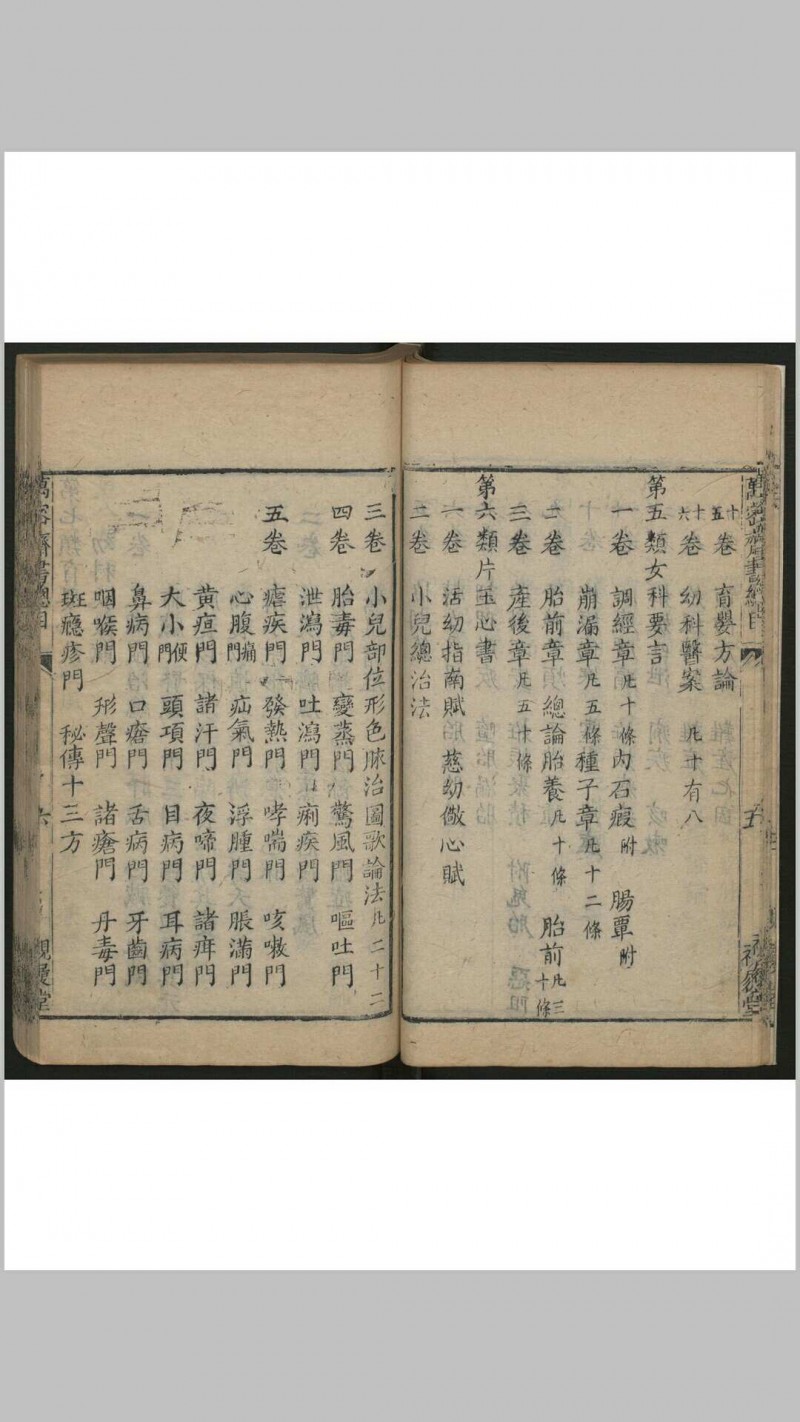 十五卷 育嬰方論
十六卷 幼科醫案 凡十有八
第五類女科要言
一卷 調經章凡十條內石瘕附 腸覃附
崩漏章凡五條種子章凡十二條
二卷 胎前章 總論胎養凡十條 胎前凡三十條
三卷 產後章凡五十條
第六類片玉心書
一卷 活幼指南賦 慈幼儆心賦
二卷 小兒總治法
三卷 小兒部位形色脉治圖歌論法凡二十二
四卷 胎毒門 變蒸門 驚風門 嘔吐門
泄瀉門 吐瀉門 痢疾門
五卷 瘧疾門 發熱門 哮喘門 咳嗽門
心腹痛門 疝氣門 浮腫門 脹滿門
黄疸門 諸汗門 夜啼門 諸疳門
大小便門 頭項門 目病門 耳病門
鼻病門 口瘡門 舌病門 牙齒門
咽喉門 形聲門 諸瘡門 丹毒門
斑癮疹門 秘傳十三方